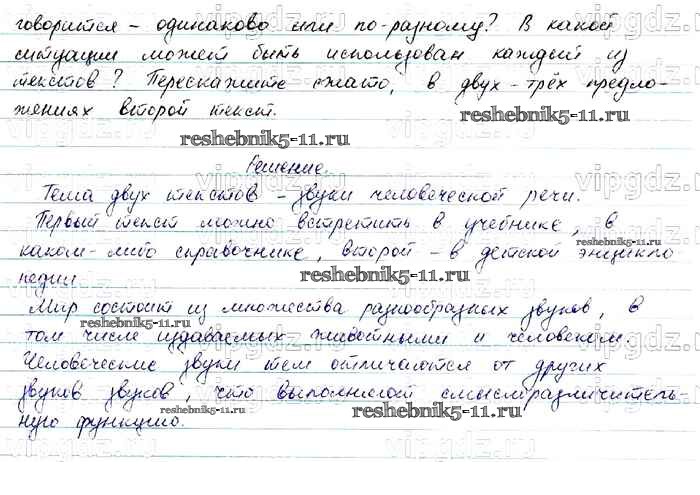 говорится – одинаково или по-разному? В какой
ситуации может быть использован каждый из
текстов? Перескажите сжато, в двух-трёх предло-
жениях второй текст.
reshebnik5-11.ru
reshebnik5-11.ru
Решение.
Тема двух текстов – звуки человеческой речи.
Первый текст можно встретить в учебнике, в
reshebnik5-11.ru
каком-либо справочнике, второй – в детской энцикло
педии.
reshebnik5-11.ru
Мир состоит из множества разнообразных звуков, в
reshebnik5-11.ru
том числе издаваемых животными и человеком.
Человеческие звуки тем отличаются от других
звуков звуков, что выполняют смыслоразличитель-
reshebnik5-11.ru
reshebnik5-11.ru
ную функцию.
vipgdz.ru